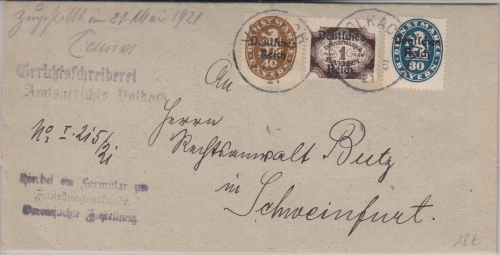 zugestellt im 21 Mai 1921
Gerichtsschreiberei
Amtsgerichts Volkach
Deutsches Reich
30
DIENSTMARKE
BAYERN
Deutsches
1
Reich
Deutsches Reich
30
DIENSTMARKE
BAYERN
VOLKACH
21
An
No I. 215/21
Herrn
Rechtsanwalt Butz
in
Schweinfurt.
Hierbei ein Formular zur
Zustellungsurkunde.
Vereinfachte Zustellung
18€